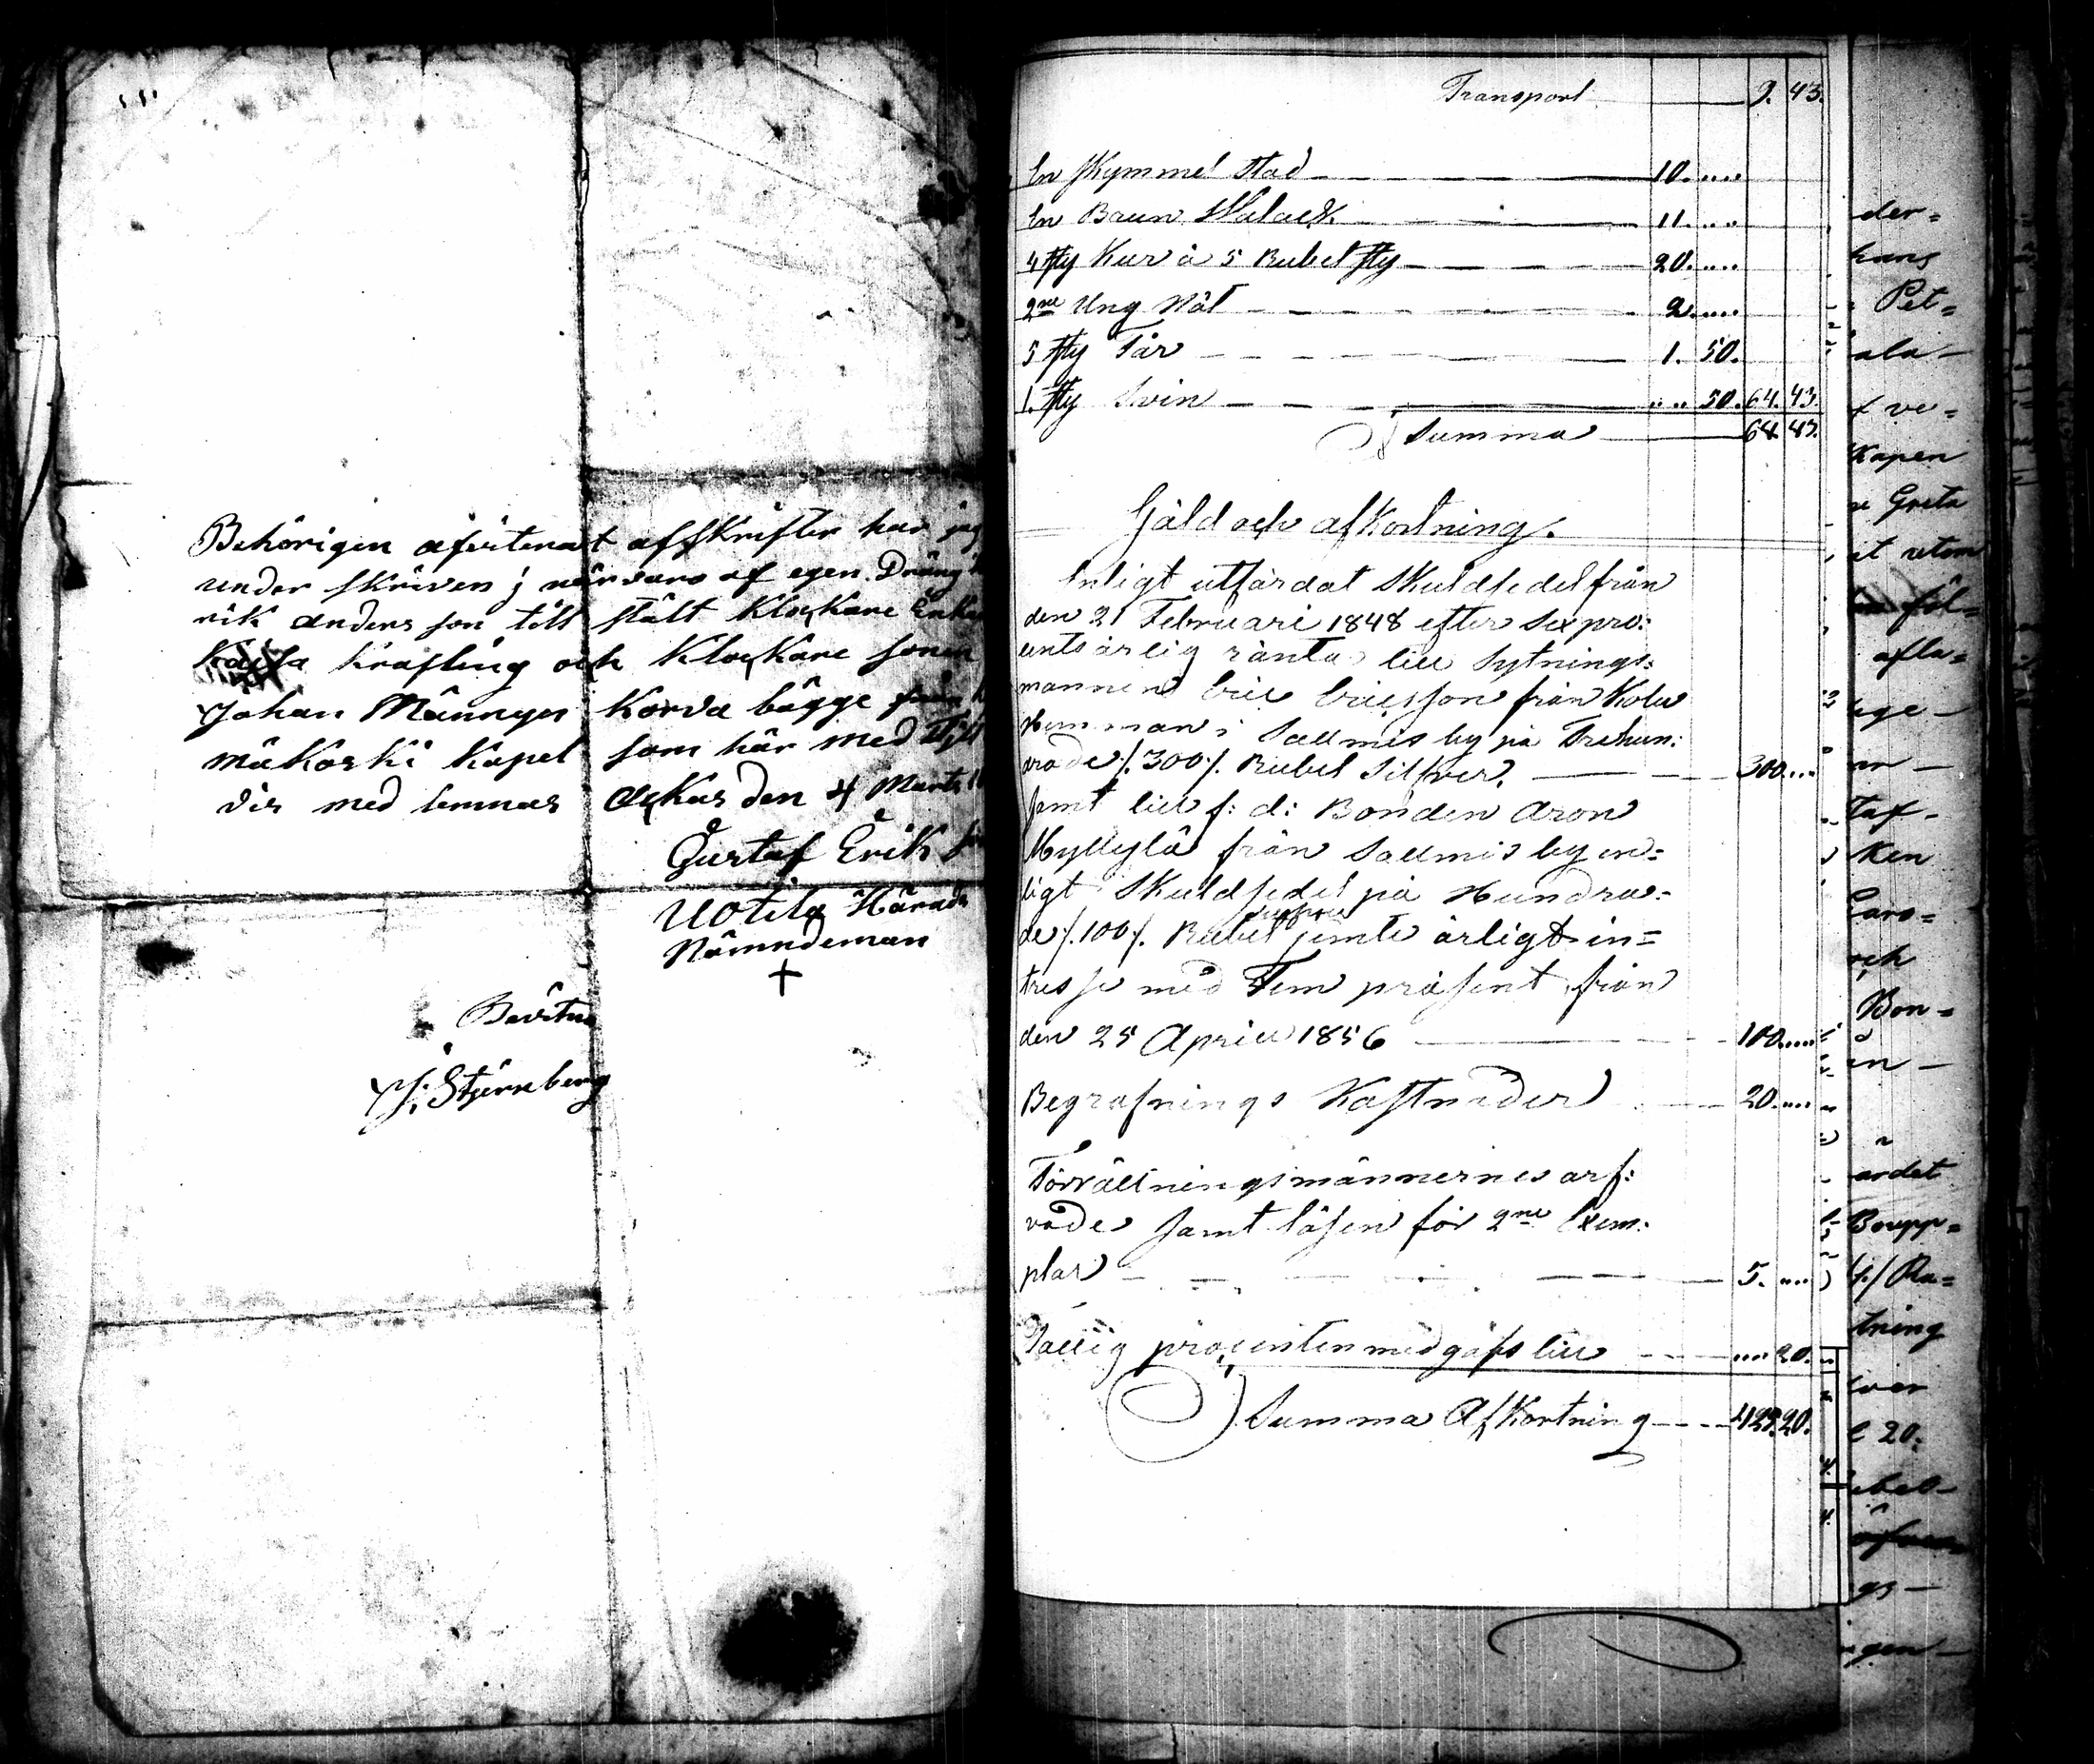 Behörigen afsitterat afskrifter har jag
under skriven i närvaro af egen Dräng
rik anders son till stält Klockare Enka
Krafting och Klockare sonen
Johan Männyn Korva bägge från
mäkoski Kapel som här med
vis med lemnas den 4 Marts
Gustaf Erik
Uotila Härads
Nämndeman
+
Bevitna
J: Stjernberg
Transport 9. 43.
En Skymmel Stod 10. ....
En Brun Walack 11. ....
4 sty Kur à 5 Rubel sty 20. ....
2ne Ung Nöt 2. ....
5 sty Får 1. 50.
1. sty Svin .... 50. 64. 43.
Summa 64. 43.
Gäld och afkortning.
Enligt utfärdat Skuldsedel från
den 21 Februari 1848 efter Sex pro:
cents årlig ränta till Sytnings:
mannen Eric Ericsson från Kolu
Hemman i Sallmis by på Trehun:
rade /. 300 /. Rubel Silfver. 300. ...
Jemt till f: d: Bonden Aron
Myllylä från Sallmis by en=
ligt Skuldsedel på Hundra=
de /. 100 /. Rubel silfver jemte årligt in=
tresse med Fem präsent från
den 25 April 1856 100. ....
Begrafnings Kostnader 20. ....
Förrättningsmännernes arf:
vode samt lösen för 2ne Exem:
plar 5. ....
Fattig procenten medgafs till .... 20.
Summa Afkortning 20.
der=
hans
Pet=
ala-
ve=
Kapen
Greta
it utom
föl=
afla=
ege-
an-
taf-
Ken
Caro=
och
Bon=
in-
ardet
Boupp=
/ Ru=
tning
lver
20:
ubel-
gs-
gen-